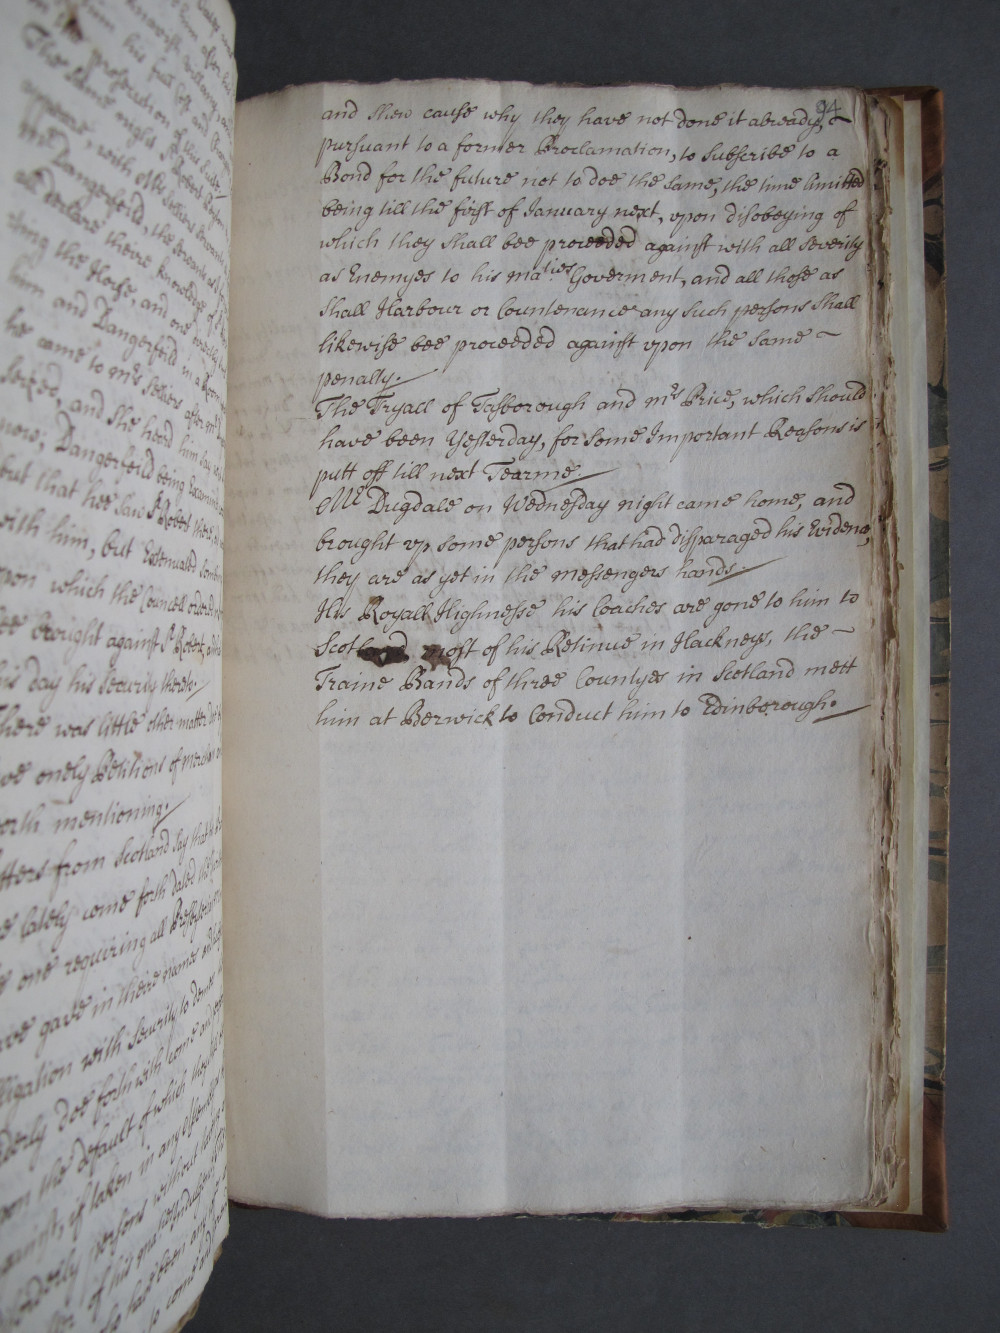 94
and shew cause why they have not done it already,
pursuant to a former Proclamation, to subscribe to a
Bond for the future not to doe the same, the time limitted
being till the first of January next, upon disobeying of
which they shall bee proceeded against with all severity
as Enemyes to his maties Goverment, and all those as
shall Harbour or Countenance any such persons shall
likewise bee proceeded against vpon the same
penalty.
The Tryall of Tasborough and mrs Price, which should
have been Yesterday, for some Important Reasons is
putt off till next Tearme
Mr Dugdale on Wednesday night came home, and
brought vp some persons that had disparaged his Evidence,
they are as yet in the messengers hands.
His Royall Highnesse his Coaches are gone to him to
Scotland most of his Retinue in Hackneys, the
Traine Bands of three Countyes in Scotland mett
him at Berwick to Conduct him to Edinborough.
the prosecution of this
The same night Sr Robert
appeare, with Mrs Selliers
Mr Dangerfeild, the servant
all declare theire knowledge of
ting the Horse, and one directly
him and Dangerfeild in a Roome
he came to mrs Selliers after mr
seized, and she heard him say
now; Dangerfeild being Examined
but that hee saw Sr Robert there,
with him, but Extenuated
upon which the Councell ordered
bee brought against Sr Robert,
his day his security thereto.
There was little other matter
onely Petitions of
worth mentioning.
from Scotland say that
lately come forth dated
one requiring all
gave in theire names and
with security to
doe forthwith come and
upon the default of which they
if taken in any
persons without
of his
had been any
to come and